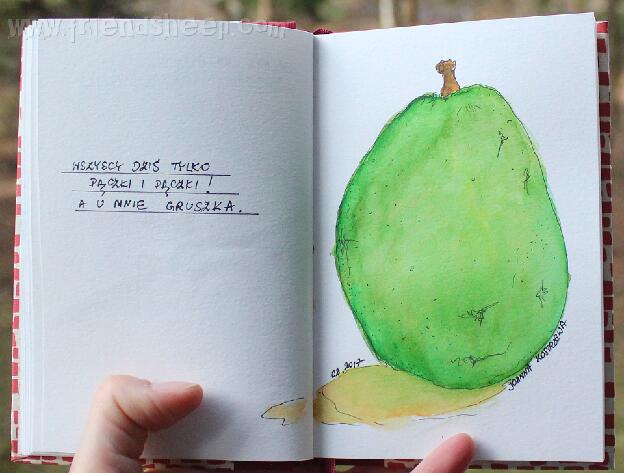 www.friendsheep.com
WSZYSCY DZIŚ TYLKO
PĄCZKI I PĄCZKI!
A U MNIE GRUSZKA.
02.2017
JOANNA KOSTRZEWA